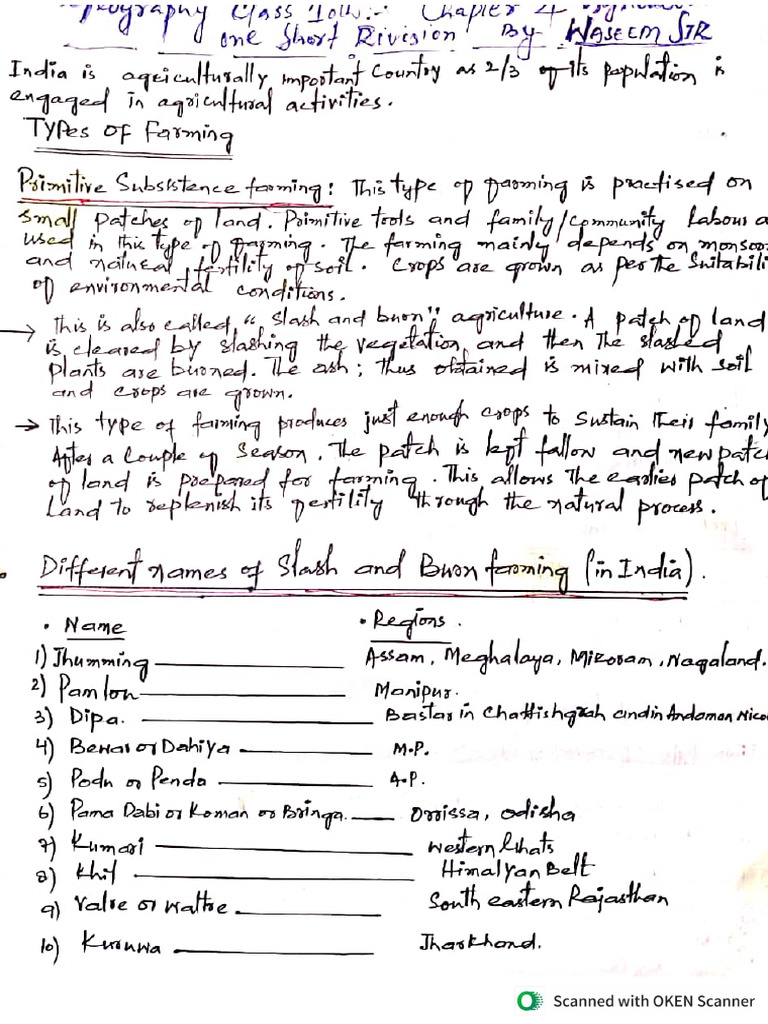 Geography Class 10th :- Chapter 4
one Short Rivision By WASEEM SIR
India is agriculturally important Country as 2/3 of its population is
engaged in agricultural activities.
Types of Farming
Primitive Subsistence farming: This type of farming is practised on
small patches of land. Primitive tools and family/community Labour a
used in this type of farming. The farming mainly depends on monsoo
and natural fertility of soil. Crops are grown as per the Suitabili
of environmental conditions.
→ This is also called "slash and burn" agriculture. A patch of land
is cleared by slashing the vegetation and then the slashed
plants are burned. The ash; thus obtained is mixed with soil
and crops are grown.
→ This type of farming produces just enough crops to sustain their family
After a couple of season. The patch is kept fallow and new patc
of land is prepared for farming. This allows the earlier patch of
Land to replenish its fertility through the natural process.
Different names of Slash and Burn farming (in India).
• Name • Regions.
1) Jhumming Assam, Meghalaya, Mizoram, Nagaland.
2) Pamlon Manipur.
3) Dipa. Bastar in Chattishgrah and in Andaman Nico
4) Bewar or Dahiya M.P.
5) Podu or Penda A.P.
6) Pama Dabi or Koman or Bringa. Orrissa, odisha
7) Kumari Western Ghats
8) Khil Himalyan Belt
9) Valre or Waltre South eastern Rajasthan
10) Kuruwa Jharkhand.
Scanned with OKEN Scanner